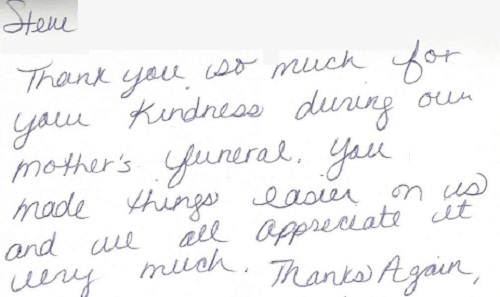 Steve
Thank you so much for
your kindness during our
mother's funeral. You
made things easier on us
and we all appreciate it
very much. Thanks Again,